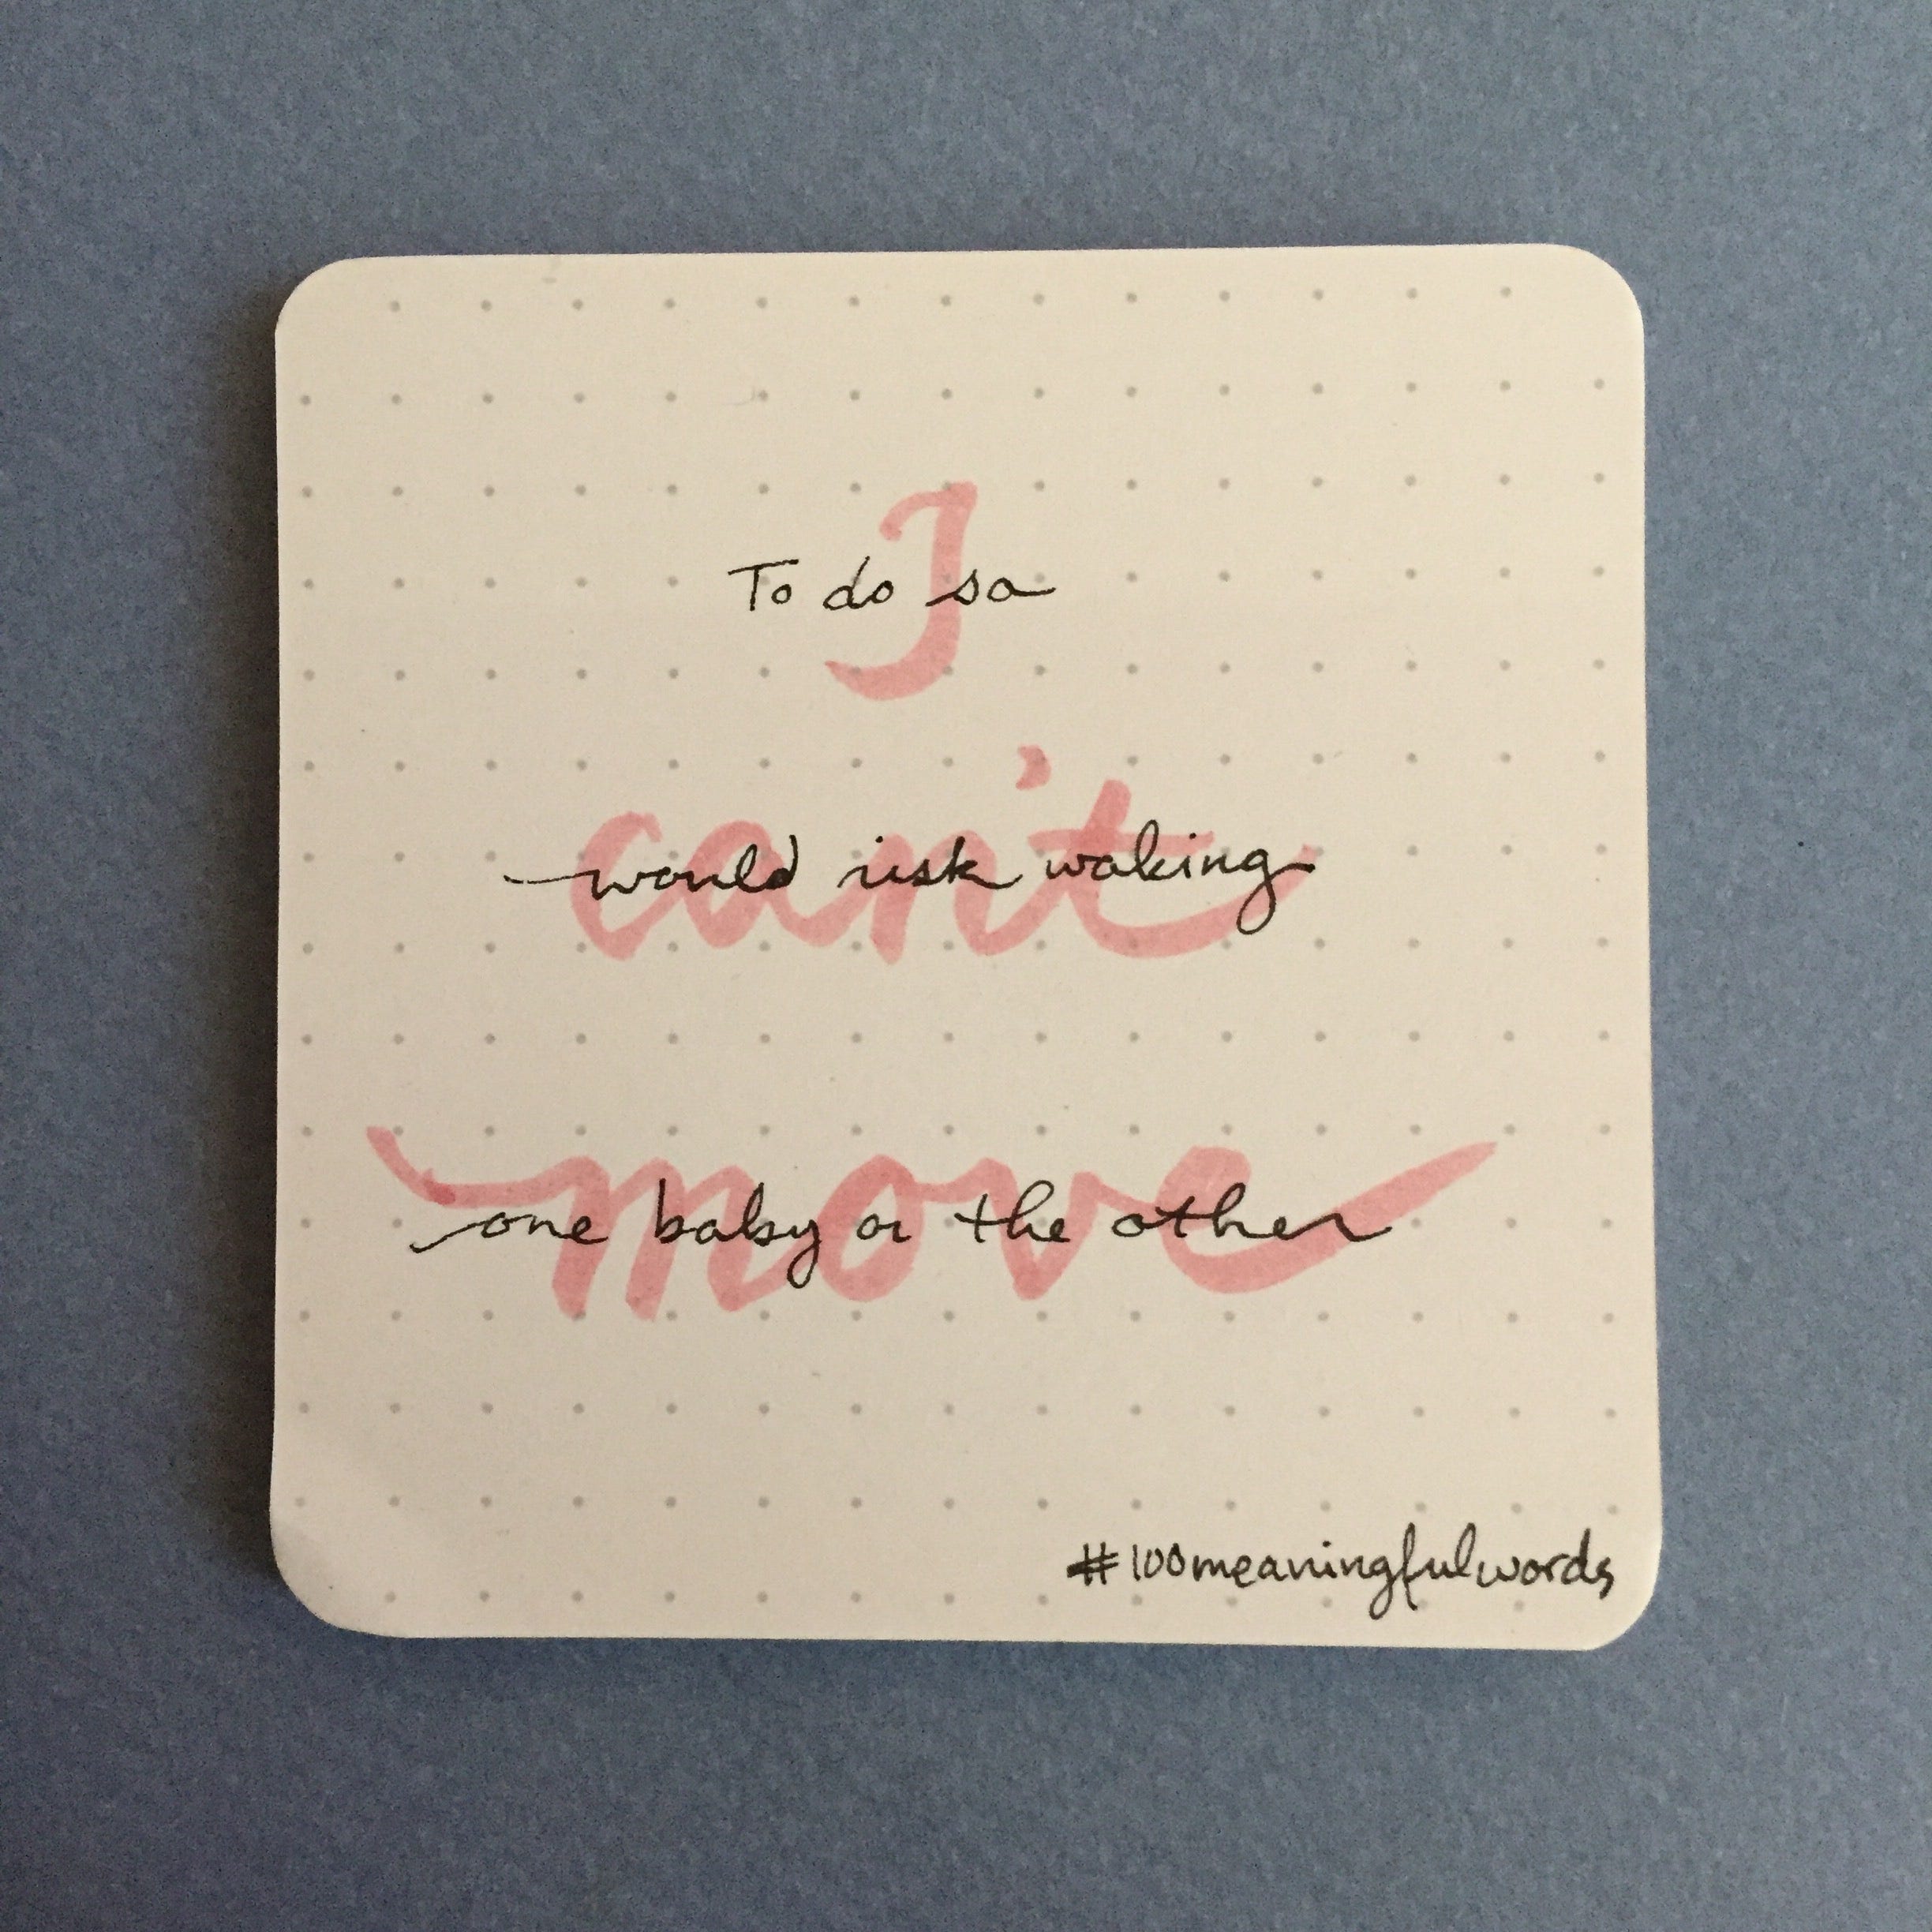 I
To do so
can't
would risk waking
move
one baby or the other
#100meaningfulwords